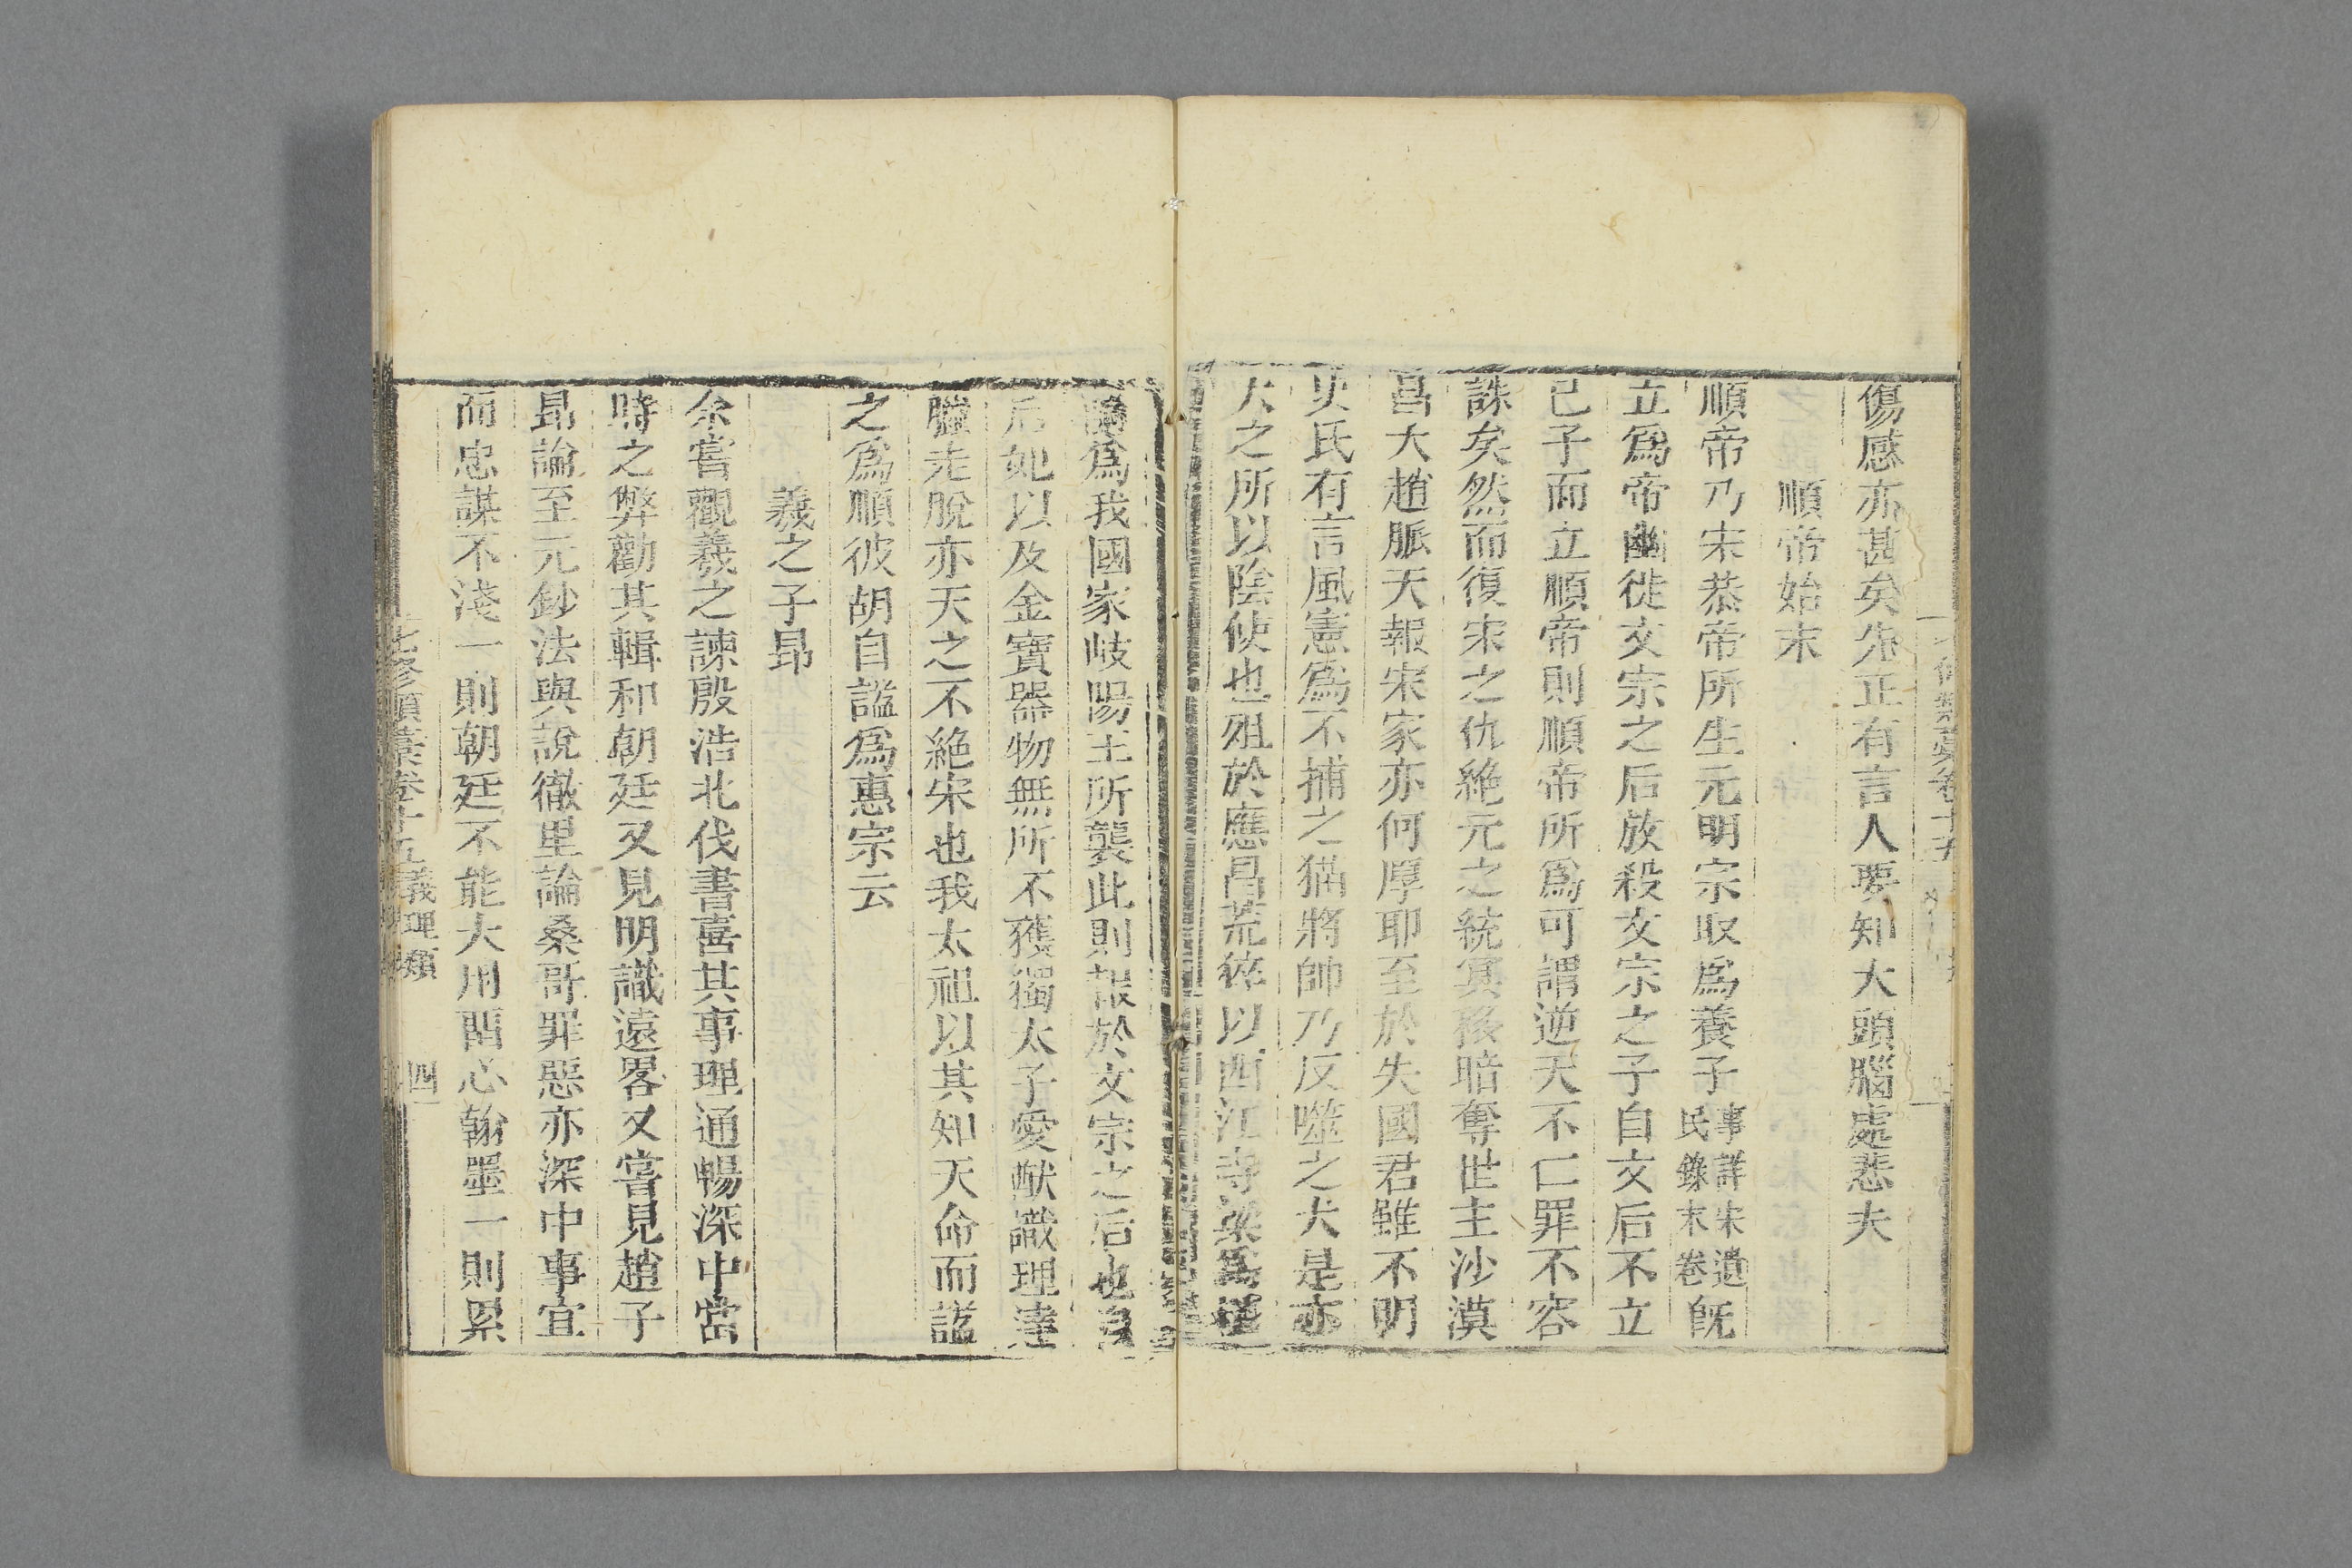 傷感亦甚矣先正有言人要知大頭腦處悲夫
順帝始末
順帝乃宋恭帝所生元明宗取爲養子事詳宋遺民錄末卷旣
立爲帝幽徙文宗之后放殺文宗之子自文后不立
已子而立順帝則順帝所爲可謂逆天不仁罪不容
誅矣然而復宋之仇絶元之統冥移暗奪世主沙漠
昌大趙脈天報宋家亦何厚耶至於失國君雖不明
史氏有言風憲爲不捕之猫將帥乃反噬之犬是亦
天之所以陰使也殂於應昌荒䘚以西江寺梁爲
爲我國家岐陽王所襲此則報於文宗之后也
后妃以及金寶器物無所不獲獨太子愛猷識理達
臘走脫亦天之不絶宋也我太祖以其知天命而諡
之爲順彼胡自諡爲惠宗云
羲之子昻
余嘗觀羲之諫殷浩北伐書喜其事理通暢深中當
時之弊勸其輯和朝廷又見明識遠畧又嘗見趙子
昻論至元鈔法與說徹里論桑哥罪惡亦深中事宜
而忠謀不淺一則朝廷不能大用留心翰墨一則累
七修類藁卷十五 義理類 四